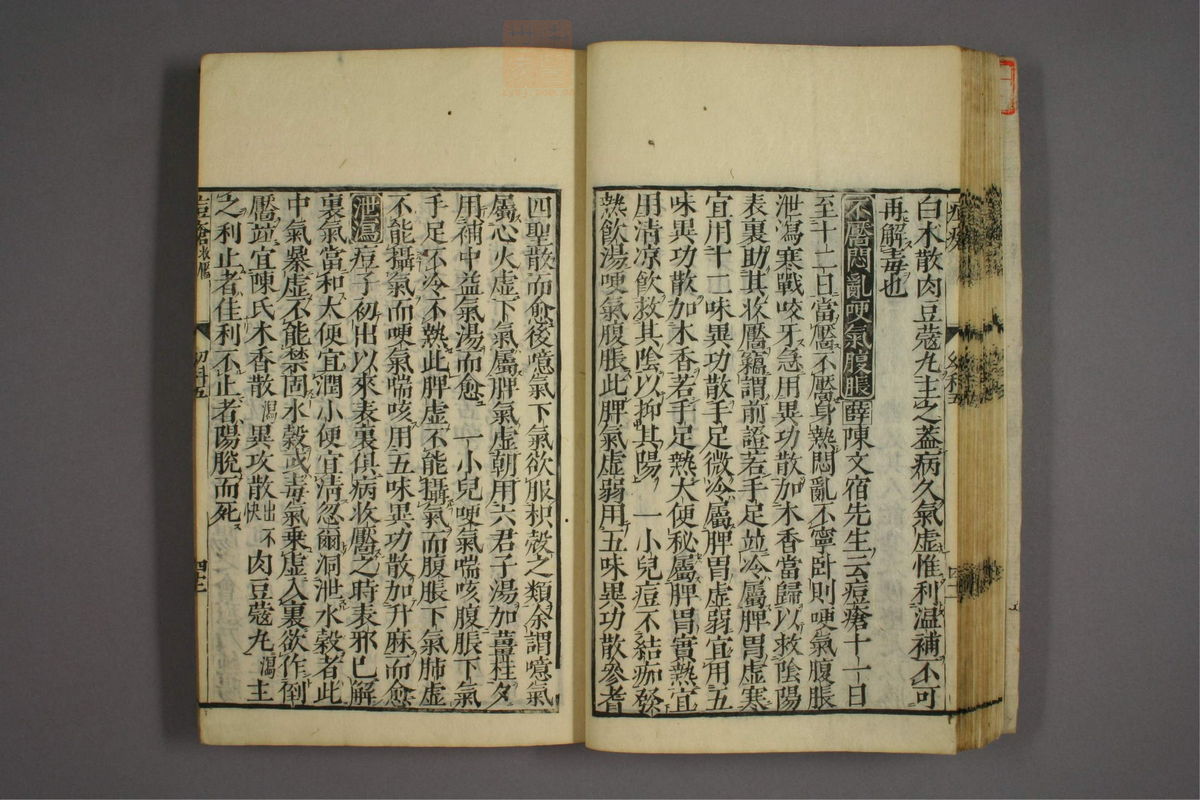 白木散肉豆蔻丸主之蓋病久氣虛惟利溫補不可
再解毒也
不靨悶亂哽氣腹脹 薛陳文宿先生云痘瘡十一日
至十二日當靨不靨身熱悶亂不寧卧則哽氣腹脹
泄瀉寒戰咬牙急用異功散加木香當歸以救陰陽
表裏助其收靨竊謂前證若手足並冷屬脾胃虛寒
宜用十二味異功散手足微冷屬脾胃虛弱宜用五
味異功散加木香若手足熱大便秘屬脾胃實熱宜
用清凉飲救其陰以抑其陽 一小兒痘不結痂發
熱飲湯哽氣腹脹此脾氣虛弱用五味異功散參耆
四聖散而愈後噫氣下氣欲服枳殼之類余謂噫氣
屬心火虛下氣屬脾氣虛朝用六君子湯加薑桂夕
用補中益氣湯而愈 一小兒哽氣喘咳腹脹下氣
手足不冷不熱此脾虛不能攝氣而腹脹下氣肺虛
不能攝氣而哽氣喘咳用五味異功散加升麻而愈
泄瀉 痘子初出以來表裏俱病收靨之時表邪已解
裏氣當和大便宜潤小便宜清忽爾洞泄水穀者此
中氣暴虛不能禁固水穀或毒氣乘虛入裏欲作倒
靨並宜陳氏木香散瀉異攻散出不快肉豆蔻丸瀉主
之利止者佳利不止者陽脫而死
痘瘡收靨 幼科五 四十二